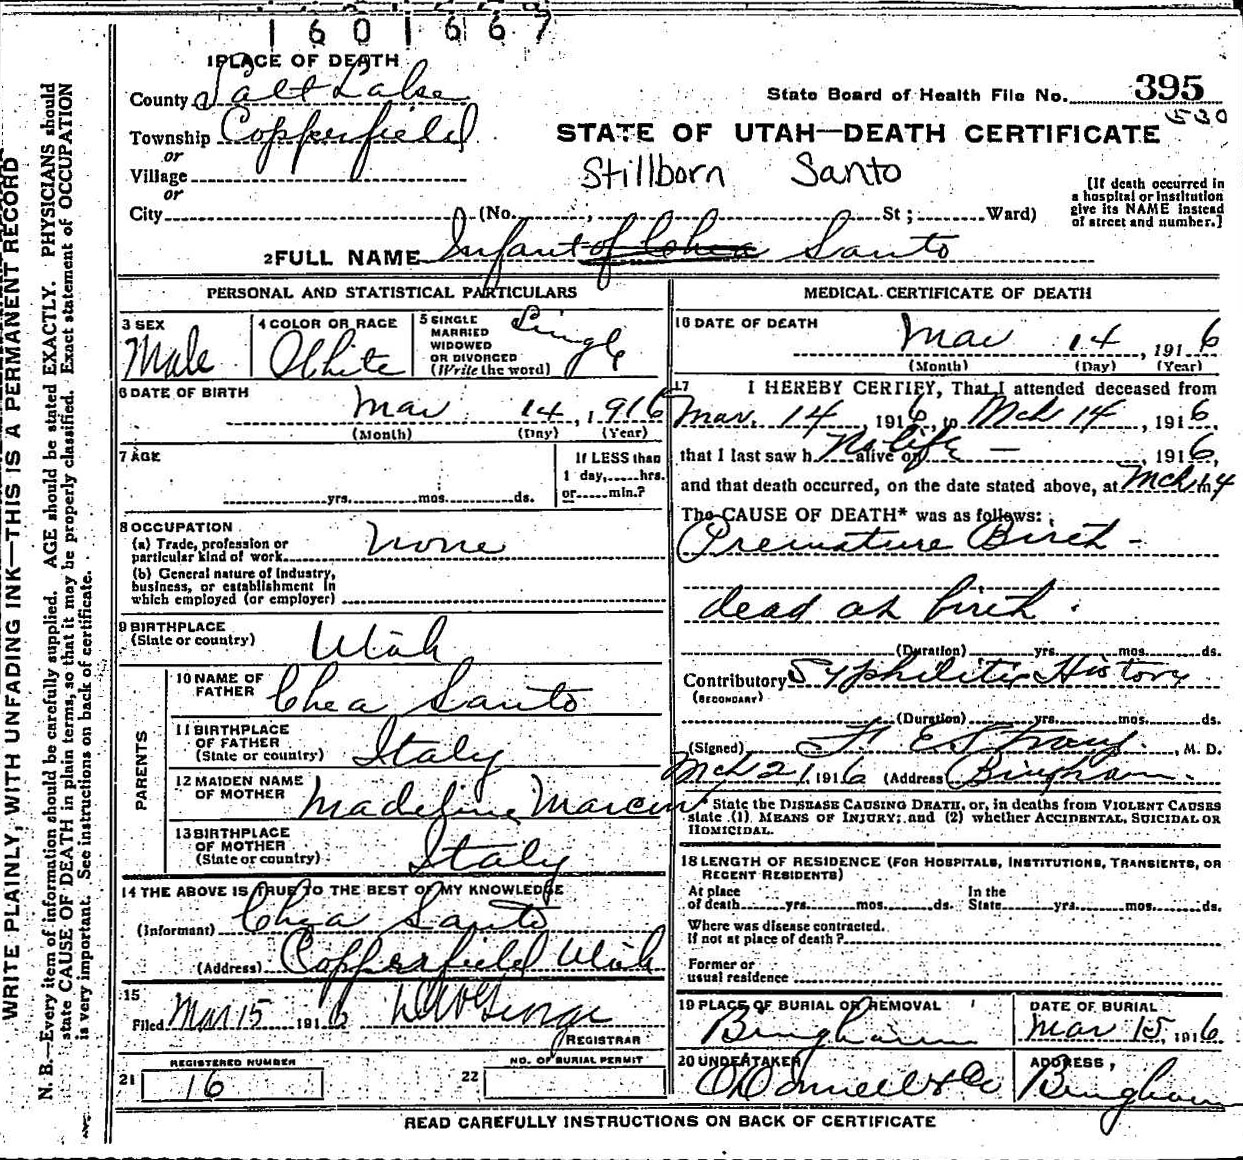 1601667
1 PLACE OF DEATH
County Salt Lake
State Board of Health File No. 395
530
Township Copperfield
STATE OF UTAH—DEATH CERTIFICATE
or
Village
Stillborn Santo
or
[If death occurred in
a hospital or institution
give its NAME instead
of street and number.]
City (No. , St ; Ward)
2 FULL NAME Infant of Chea Santo
PERSONAL AND STATISTICAL PARTICULARS
3 SEX
Male
4 COLOR OR RACE
White
5 SINGLE
MARRIED
WIDOWED
OR DIVORCED
(Write the word)
Single
6 DATE OF BIRTH
Mar 14, 1916
(Month) (Day) (Year)
7 AGE
yrs. mos. ds.
If LESS than
1 day, hrs.
or min.?
8 OCCUPATION
(a) Trade, profession or
particular kind of work None
(b) General nature of Industry,
business, or establishment in
which employed (or employer)
9 BIRTHPLACE
(State or country) Utah
PARENTS
10 NAME OF
FATHER Chea Santo
11 BIRTHPLACE
OF FATHER
(State or country) Italy
12 MAIDEN NAME
OF MOTHER Madeline Marcin
13 BIRTHPLACE
OF MOTHER
(State or country) Italy
14 THE ABOVE IS TRUE TO THE BEST OF MY KNOWLEDGE
(Informant) Chea Santo
(Address) Copperfield Utah
15
Filed Mar 15 1916
REGISTRAR
REGISTERED NUMBER
21 16
NO. OF BURIAL PERMIT
22
MEDICAL CERTIFICATE OF DEATH
16 DATE OF DEATH
Mar 14, 1916
(Month) (Day) (Year)
17 I HEREBY CERTIFY, That I attended deceased from
Mar. 14, 1916, to Mch 14, 1916,
that I last saw h No life alive on — , 1916,
and that death occurred, on the date stated above, at Mch 14 m.
The CAUSE OF DEATH* was as follows:
Premature Birth -
dead at birth.
(Duration) yrs. mos. ds.
Contributory Syphilitic History
(SECONDARY)
(Duration) yrs. mos. ds.
(Signed) F. E. Straup, M. D.
Mch 21 1916 (Address) Bingham.
* State the DISEASE CAUSING DEATH, or, in deaths from VIOLENT CAUSES
state (1) MEANS OF INJURY; and (2) whether ACCIDENTAL, SUICIDAL OR
HOMICIDAL.
18 LENGTH OF RESIDENCE (FOR HOSPITALS, INSTITUTIONS, TRANSIENTS, OR
RECENT RESIDENTS)
At place
of death yrs. mos. ds.
In the
State yrs. mos. ds.
Where was disease contracted.
If not at place of death?
Former or
usual residence
19 PLACE OF BURIAL OR REMOVAL
Bingham
DATE OF BURIAL
Mar 15, 1916
20 UNDERTAKER
O'Donnell & Co
ADDRESS,
Bingham
READ CAREFULLY INSTRUCTIONS ON BACK OF CERTIFICATE
WRITE PLAINLY, WITH UNFADING INK—THIS IS A PERMANENT RECORD
N. B.—Every item of information should be carefully supplied. AGE should be stated EXACTLY. PHYSICIANS should
state CAUSE OF DEATH in plain terms, so that it may be properly classified. Exact statement of OCCUPATION
is very important. See instructions on back of certificate.